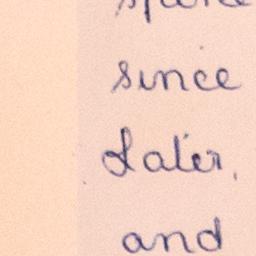 since
Later,
and